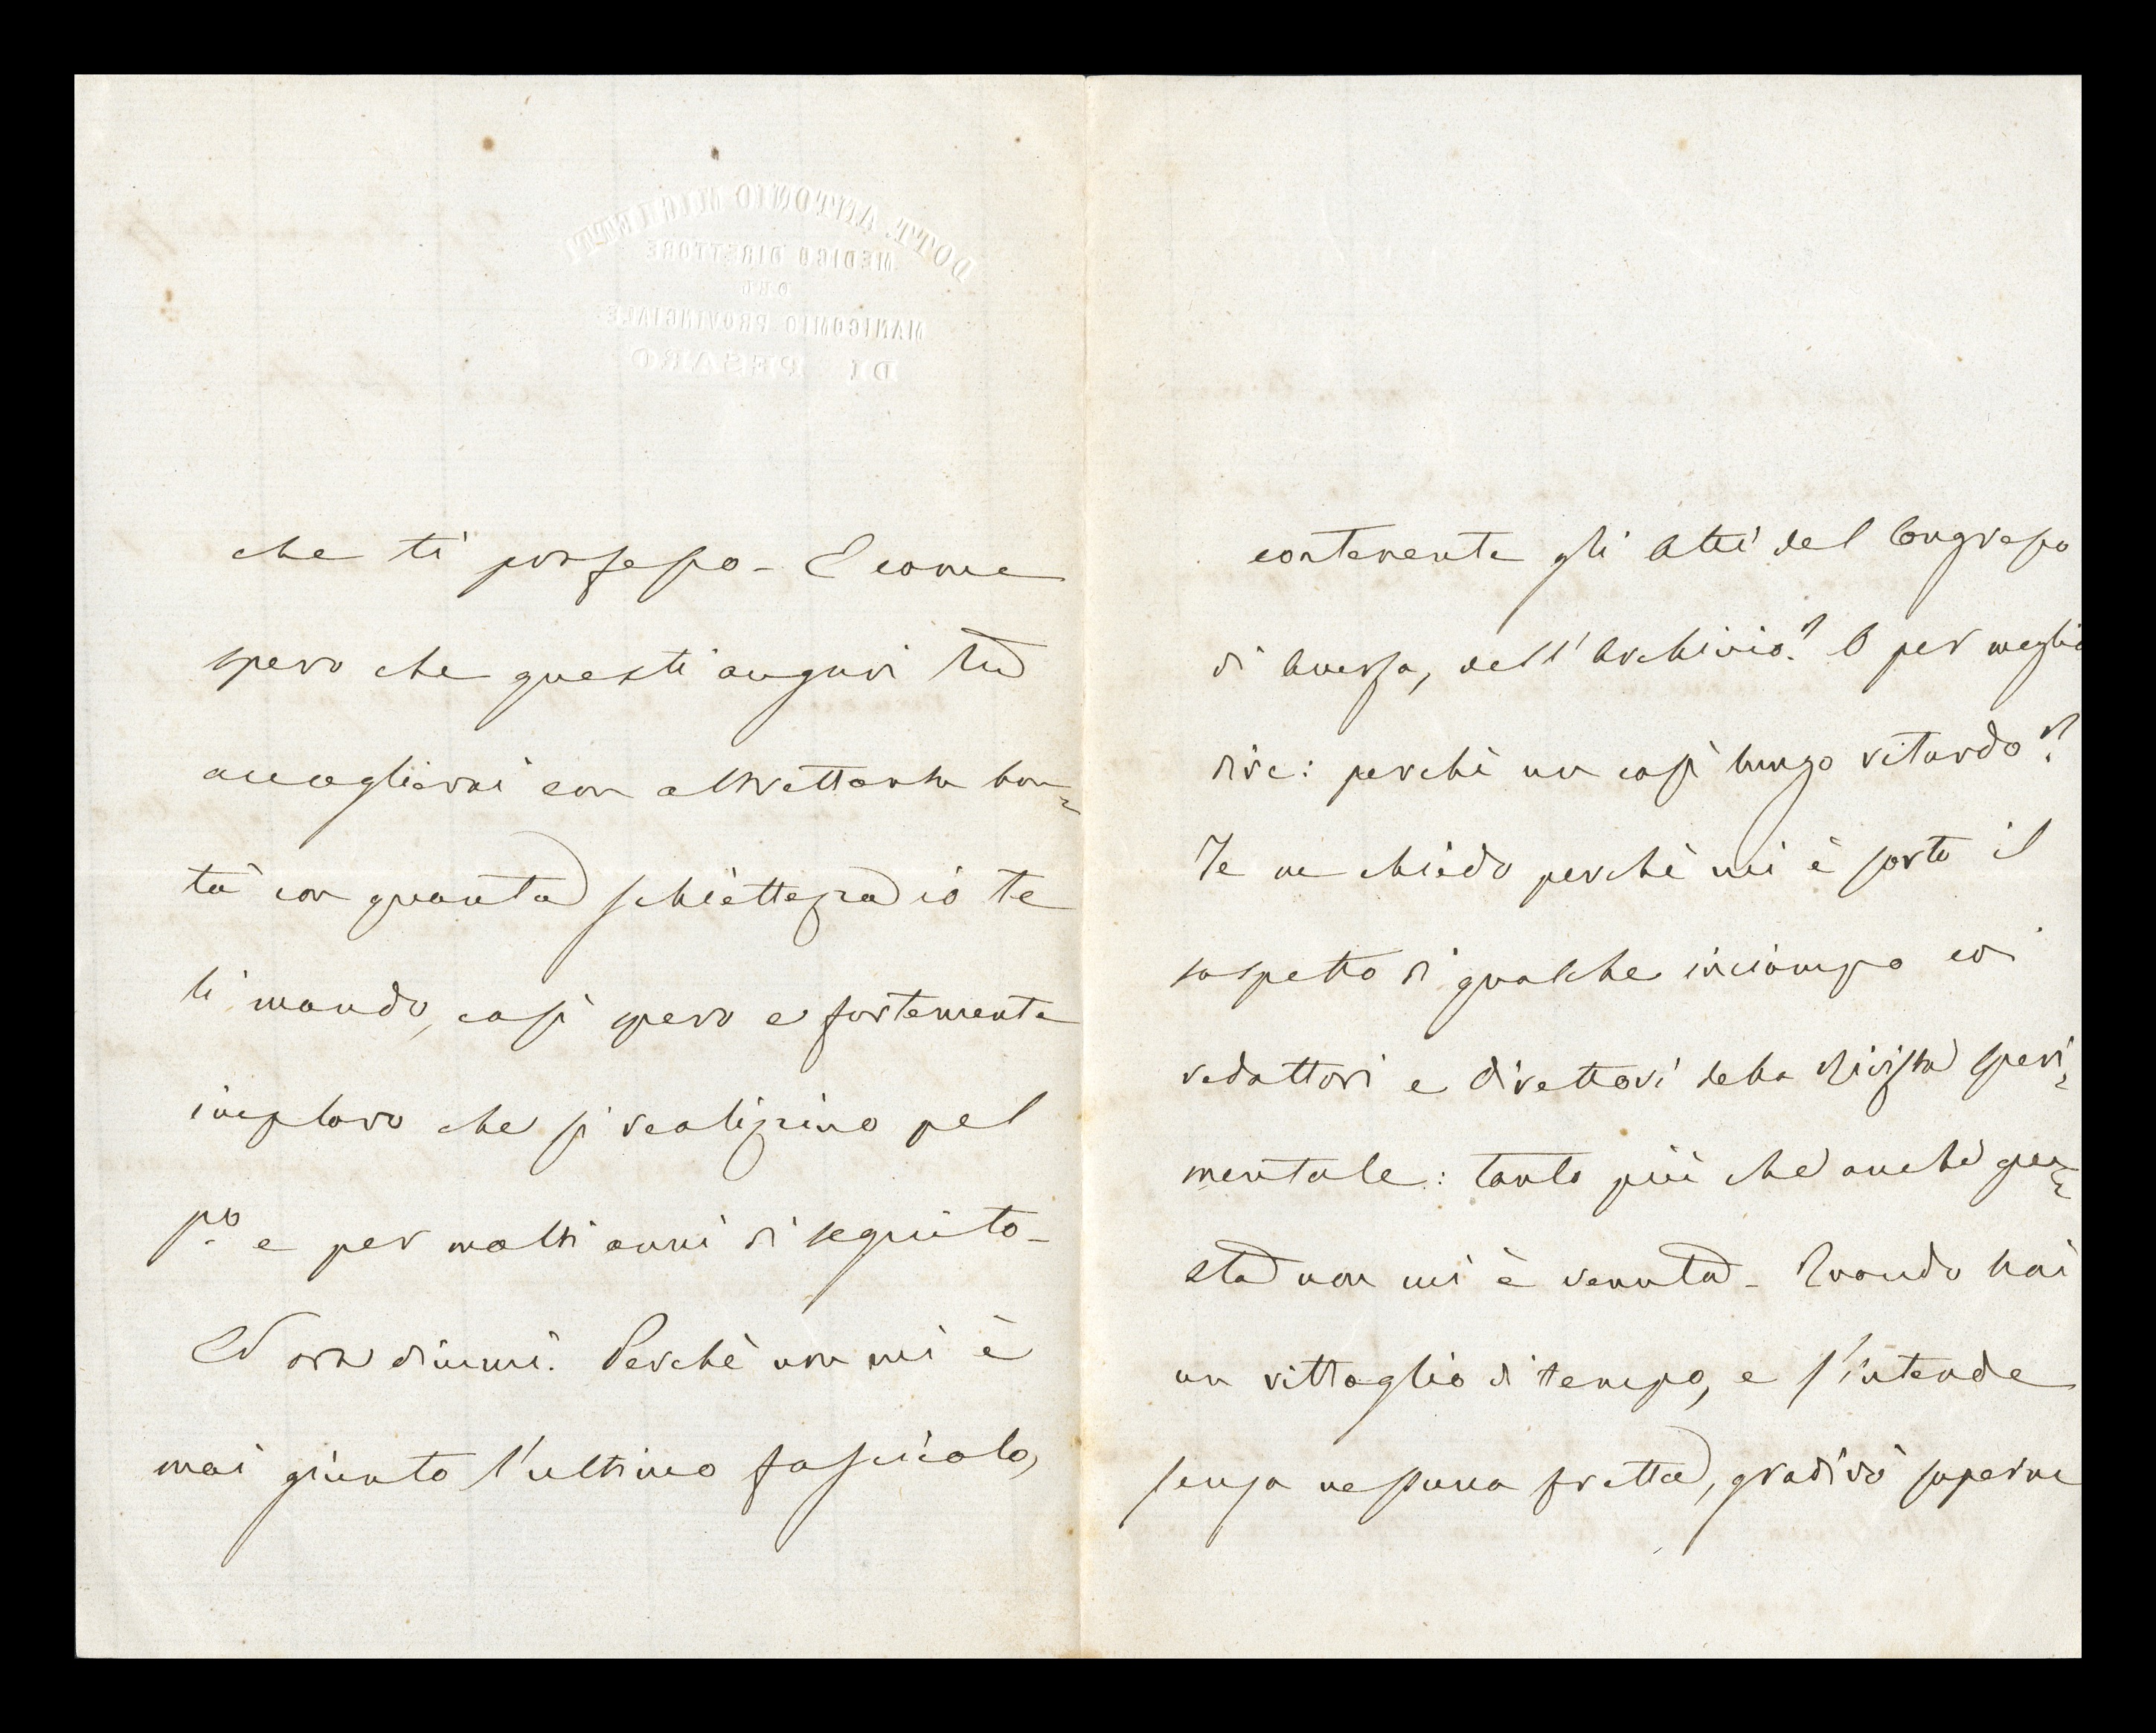 DOTT. ANTONIO MICHETTI
MEDICO DIRETTORE
DEL
MANICOMIO PROVINCIALE
DI PESARO
che ti professo - E come
spero che questi auguri tu
accoglierai con altrettanta bon=
tà con quanta schiettezza io te
li mando, così spero e fortemente
imploro che si realizzino pel
p.º e per molti anni di seguito -
Ed ora dimmi. Perchè non mi è
mai giunto l'ultimo fascicolo,
contenente gli Atti del Congresso
di Aversa, dell'Archivio? O per meglio
dire: perchè un così lungo ritardo?
Te ne chiedo perchè mi è sorto il
sospetto di qualche inciampo coi
redattori e direttori della Rivista speri=
mentale: tanto più che anche que=
sta non mi è venuta - Quando hai
un rittaglio di tempo, e s'intende
senza nessuna fretta, gradirò saperne